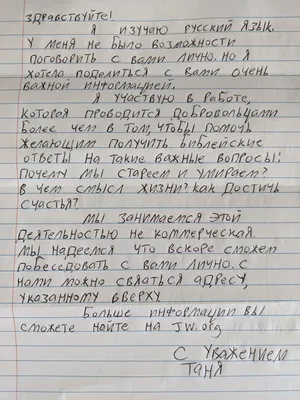 ЗДРАВСТВУЙТЕ!
Я ИЗУЧАЮ РУССКИЙ ЯЗЫК.
У МЕНЯ НЕ БЫЛО ВОЗМОЖНОСТИ
ПОГОВОРИТЬ С ВАМИ ЛИЧНО. НО Я
ХОТЕЛА ПОДЕЛИТЬСЯ С ВАМИ ОЧЕНЬ
ВАЖНОЙ ИНФОРМАЦИЕЙ.
Я УЧАСТВУЮ В РАБОТЕ,
КОТОРАЯ ПРОВОДИТСЯ ДОБРОВОЛЬЦАМИ
БОЛЕЕ ЧЕМ В ТОМ, ЧТОБЫ ПОМОЧЬ
ЖЕЛАЮЩИМ ПОЛУЧИТЬ БИБЛЕЙСКИЕ
ОТВЕТЫ НА ТАКИЕ ВАЖНЫЕ ВОПРОСЫ:
ПОЧЕМУ МЫ СТАРЕЕМ И УМИРАЕМ?
В ЧЕМ СМЫСЛ ЖИЗНИ? КАК ДОСТИЧЬ
СЧАСТЬЯ?
МЫ ЗАНИМАЕМСЯ ЭТОЙ
ДЕЯТЕЛЬНОСТЬЮ НЕ КОММЕРЧЕСКАЯ.
МЫ НАДЕЕМСЯ ЧТО ВСКОРЕ СМОЖЕМ
ПОБЕСЕДОВАТЬ С ВАМИ ЛИЧНО. С
НАМИ МОЖНО СВЯТАЬСЯ АДРЕСУ,
УКАЗАННОМУ ВВЕРХУ
БОЛЬШЕ ИНФОРМАЦИИ ВЫ
СМОЖЕТЕ НАЙТЕ НА JW.ORG
С УВАЖЕНИЕМ
ТАНЯ